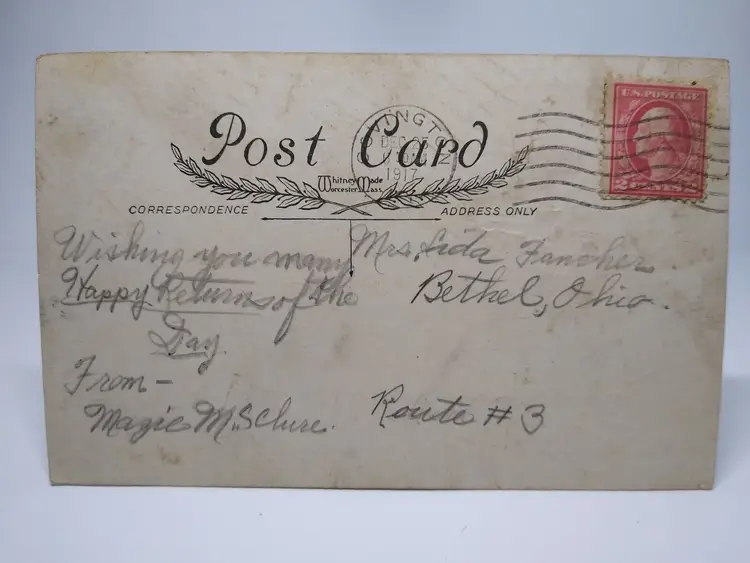 U.S. POSTAGE
2 CENTS 2
INGTO
DEC
1917
Post Card
Whitney Made
Worcester, Mass.
CORRESPONDENCE
ADDRESS ONLY
Wishing you many
Happy Returns of the
Day.
From -
Mazie McClure.
Mrs. Lida Fancher.
Bethel, Ohio.
Route # 3